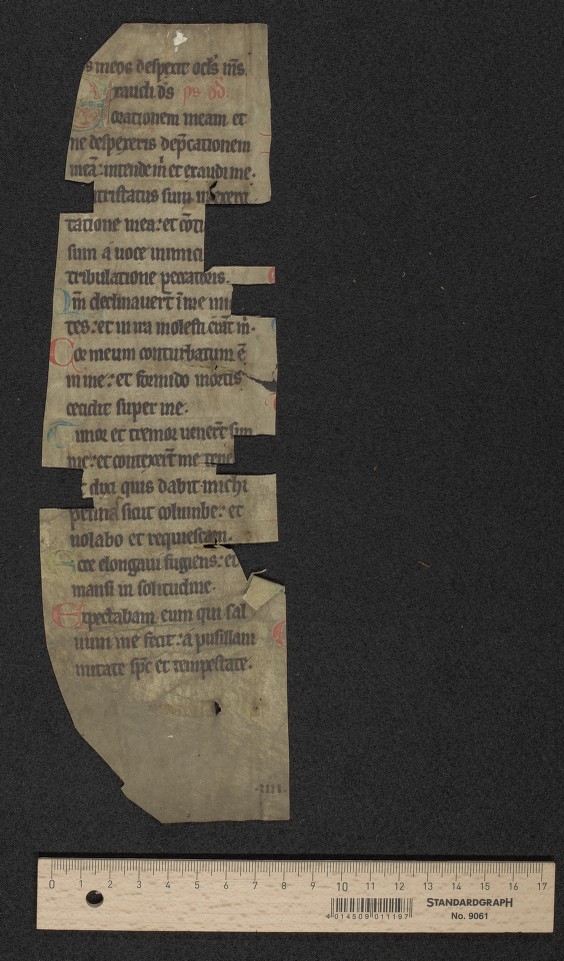 s meos despexit ocłs m̄s.
xaudi ds̄ ps dd̄.
orationem meam et
ne despexeris dep̄cationem
meā: intende m̄ et exaudi me.
tristatus sum in exerci
tatione mea: et cōtu
sum a uoce inimici
tribulatione peccatoris.
m̄ declinauert̄ ī me ini
tes: et in ira molesti erāt m̄.
Cor meum conturbatum ē
in me: et formido mortis
cecidit super me.
Timor et tremor uenert̄ sup
me: et contexert̄ me tene
t dixi quis dabit michi
penna sicut columbe: et
uolabo et requiescam.
cce elongaui fugiens: et
mansi in solitudine.
Expectabam eum qui sal
uum me fecit: a pusillani
mitate sp̄c et tempestate.
.IIII.
0 1 2 3 4 5 6 7 8 9 10 11 12 13 14 15 16 17
STANDARDGRAPH
No. 9061
4 014509 011197